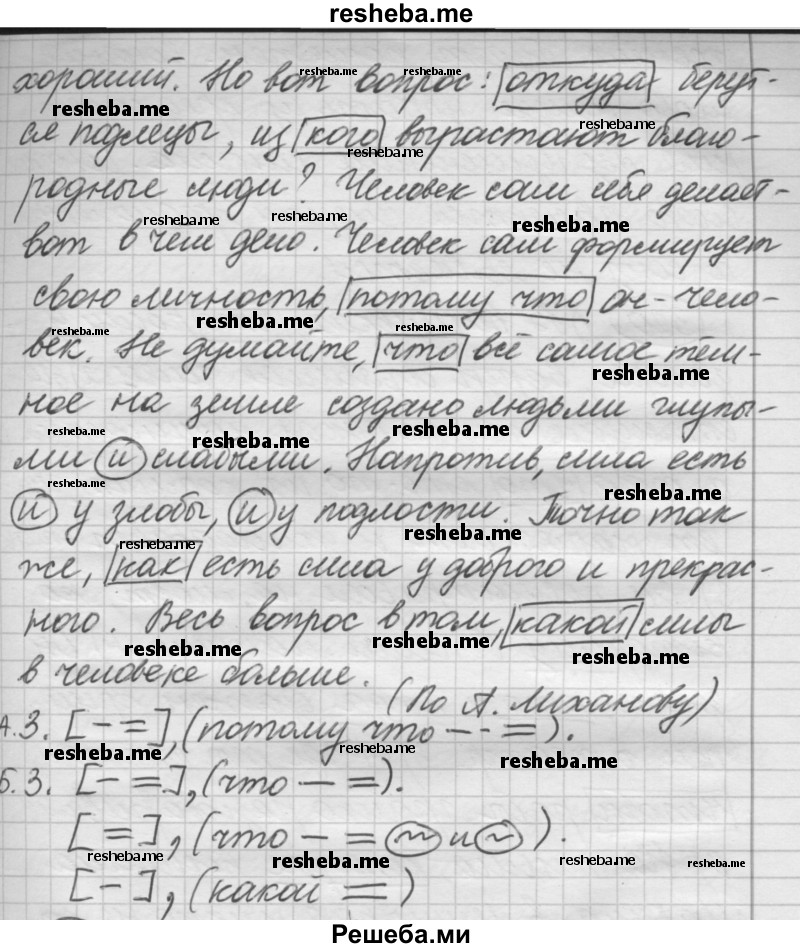 resheba.me
хороший. Но вот вопрос: откуда берут-
ся подлецы, из кого вырастают благо-
родные люди? Человек сам себя делает-
вот в чем дело. Человек сам формирует
свою личность, потому что он - чело-
век. Не думайте, что всё самое тём-
ное на земле создано людьми глупы-
ми и слабыми. Напротив, сила есть
и у злобы, и у подлости. Точно так
же, как есть сила у доброго и прекрас-
ного. Весь вопрос в том, какой силы
в человеке больше.
(По А. Лиханову)
А.3. [- =], (потому что - - =).
Б.3. [- =], (что - =).
[=], (что - = ~ и ~).
[-], (какой =)
Решеба.ми